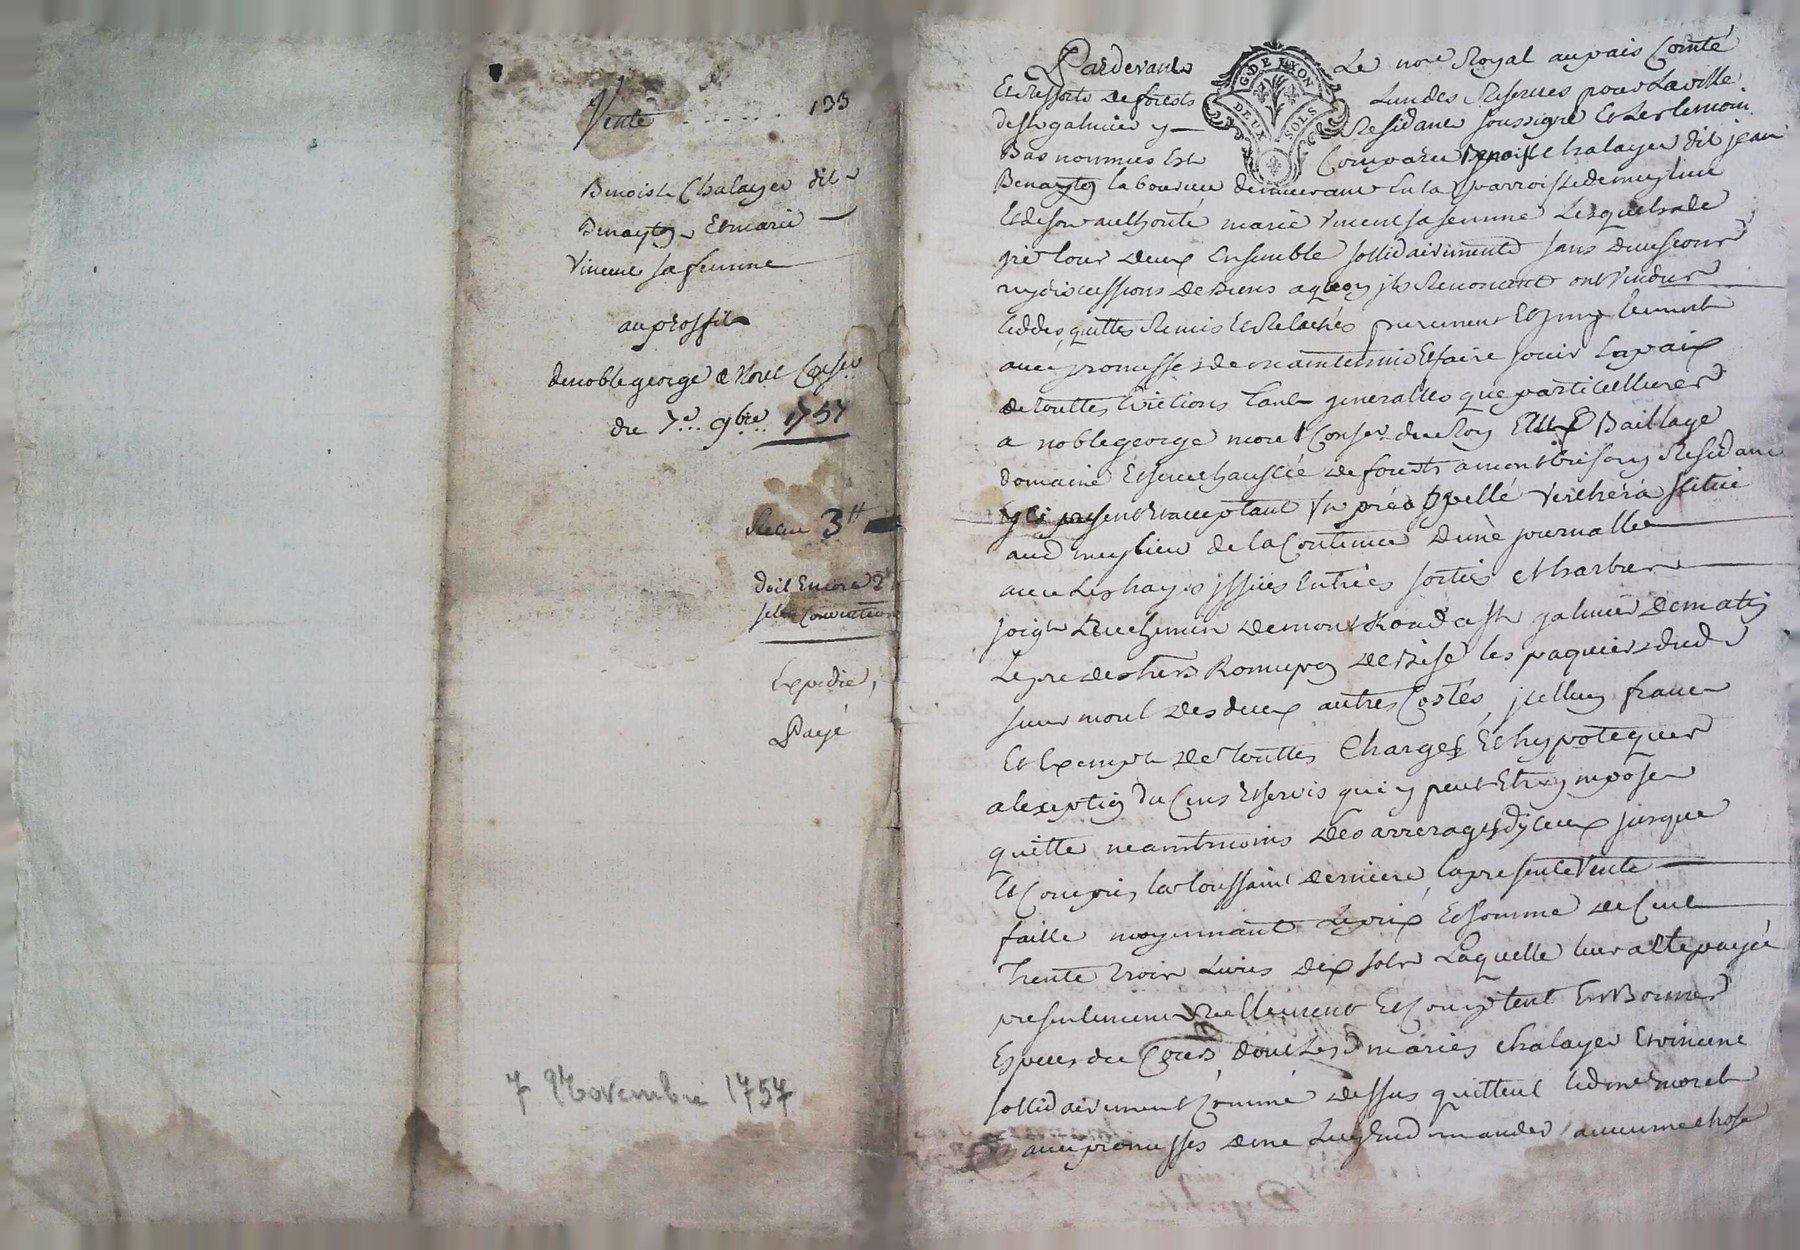 Vente ........ 133
Benoist Chalayer dit
Benayton Et marie
Vincent sa femme
au proffit
de noble george de Morel Conser
du 7e.. 9bre. 1757
Reçu 3tt
doit Encore 2
selon Convention
Expedié,
Payé
7 Novembre 1757
Pardevant Le nore Royal au pais Comté
G. DE LYON
DEUX SOLS
Et Ressorts de forests Lun des Reservés pour La ville
de st galmier y Residant soussigné Et Les temoins
Bas nommés Est Comparu Benoist chalayer dit jean
Benayton laboureur demeurant En la parroisse de meylieu
Et de son authorité marie Vincent sa femme Lesquels de
gré tour deux Ensemble sollidairement sans division
ny discussions de biens a quoy ils Renoncent ont Vendu
cedés, quittés Remis Et Relachés purement Et simplement
avec promesses de maintenir Et faire jouir En paix
de touttes Evictions tant generalles que particullieres
a noble george morel Conser du Roy Et Baillage
domaine Et senechaussée de forests a montbrison y Residant
present Et acceptant Un pré appellé Verchera scitué
aud meylieu de la Contenue d'une journallée
avec Les hayes issües Entrées sorties et harbres
joigt Le chemin de mont Rond a st galmier de matin
Le pré des hers de bise les paquiers dud
sieur morel des deux autres Costés, icelluy franc
Et Exempt de touttes Charges Et hypoteques
a lexeption du Cens Et servis qui y peut Etre imposé
quitte neantmoins des arrerages d'iceux jusque
Et Compris la toussaint derniere, la presente Vente
faitte moyennant Le prix Et somme de Cent
trente trois Livres dix sols Laquelle leur a Eté payée
presentement Reellement Et Comptent En Bonnes
Especes du Cours, dont Les d mariés chalayer Et vincent
sollidairement Comme dessus quittent led me morel
avec promesses de ne Luy En demander aucune chose